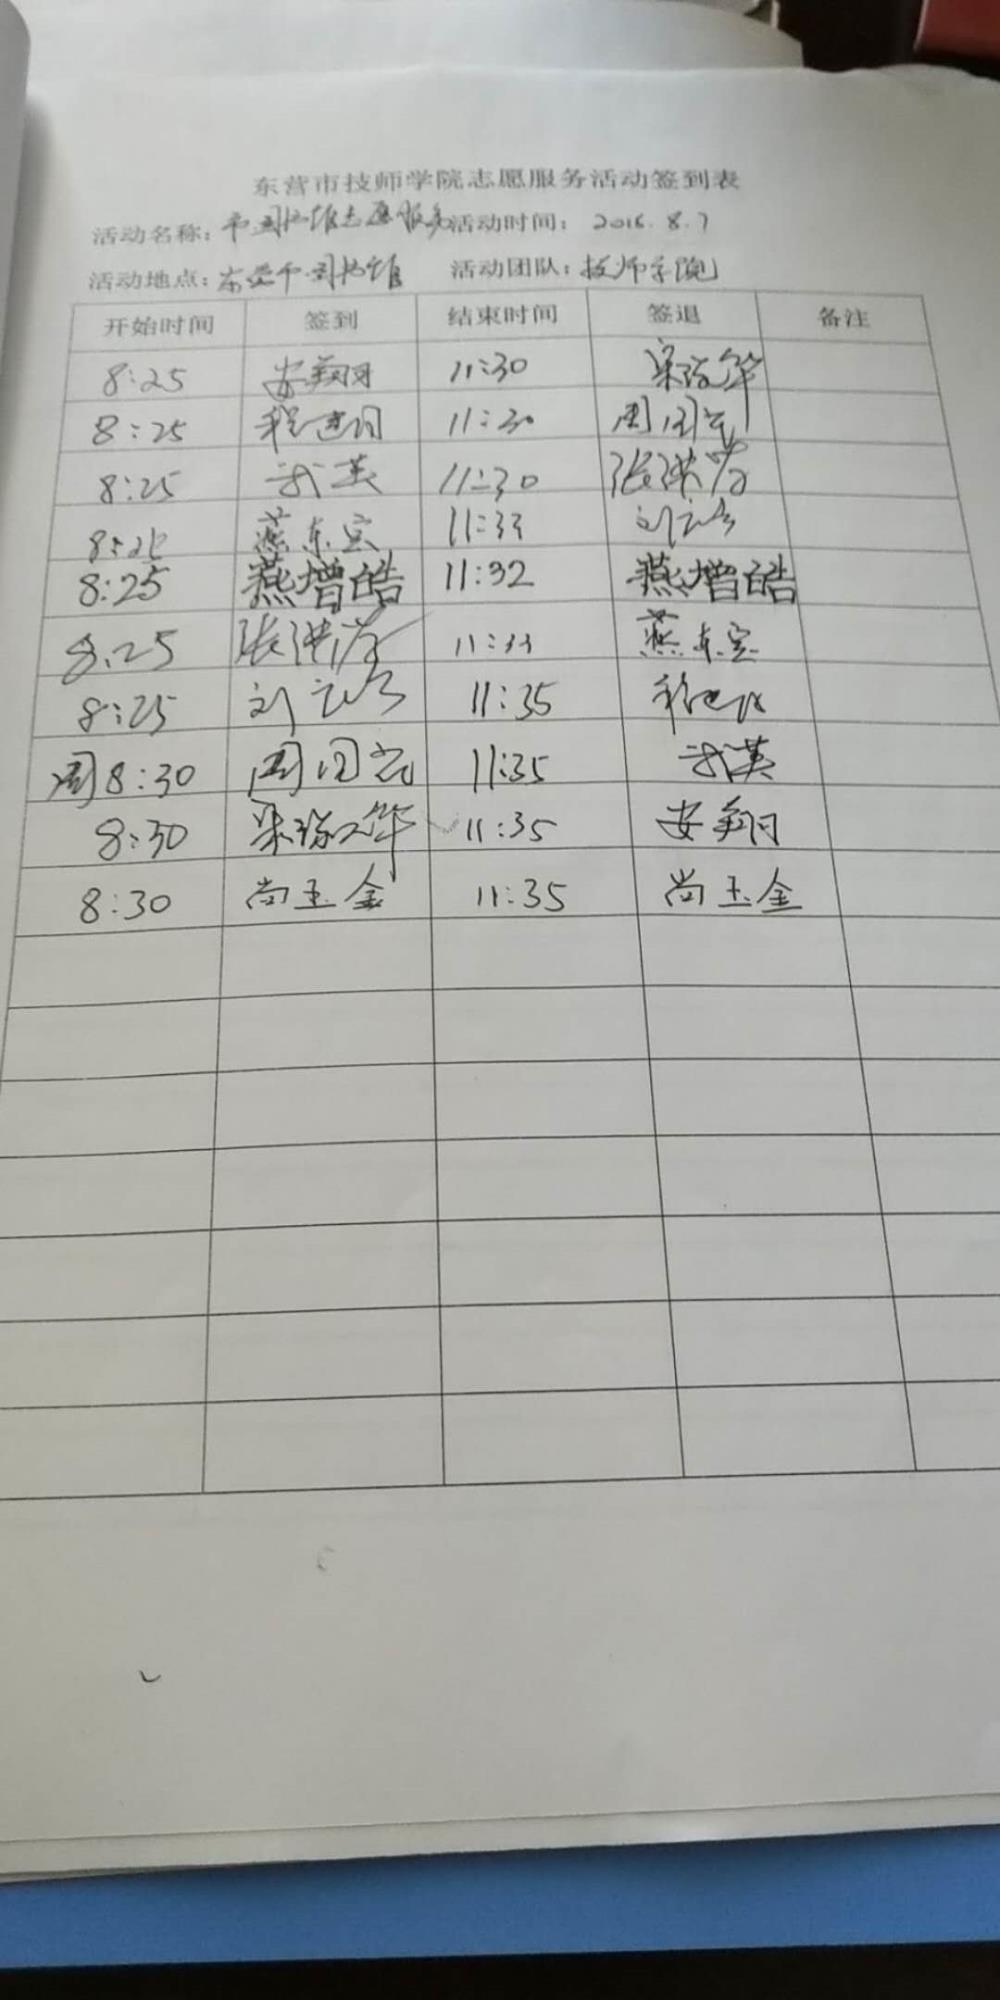 东营市技师学院志愿服务活动签到表
活动名称：市图书馆志愿服务 活动时间：2016.8.7
活动地点：东营市图书馆 活动团队：技师学院
开始时间 签到 结束时间 签退 备注
8:25 安翔 11:30
8:25 11:30
8:25 武英 11:30
燕东宝 11:33
8:25 燕增皓 11:32 燕增皓
8:25 11:33 燕东宝
8:25 刘 11:35
周 8:30 周 11:35 武英
8:30 梁 11:35 安翔
8:30 尚玉金 11:35 尚玉金